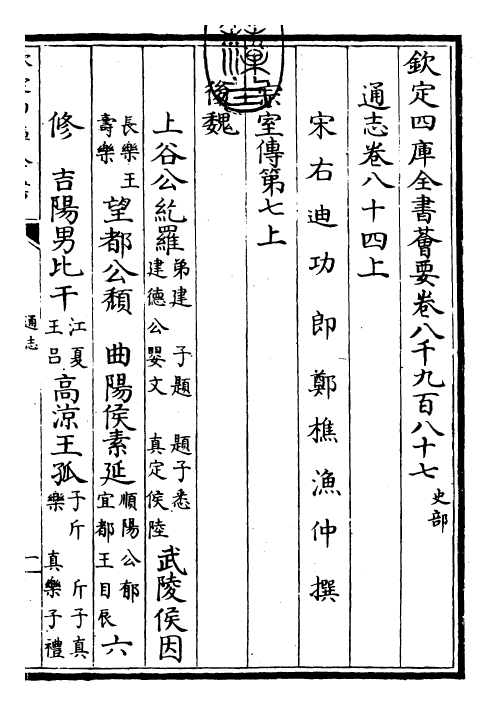 欽定四庫全書薈要卷八千九百八十七 史部
通志卷八十四上
宋右迪功郎鄭樵漁仲撰
宗室傳第七上
後魏
上谷公紇羅 弟建 子題 題子悉 建德公嬰文 真定侯陸 武陵侯因
長樂王壽樂 望都公頹 曲陽侯素延 順陽公郁 宜都王目辰 六
修 吉陽男比干 江夏王呂 高涼王孤 子斤 斤子真樂 真樂子禮
通志
一